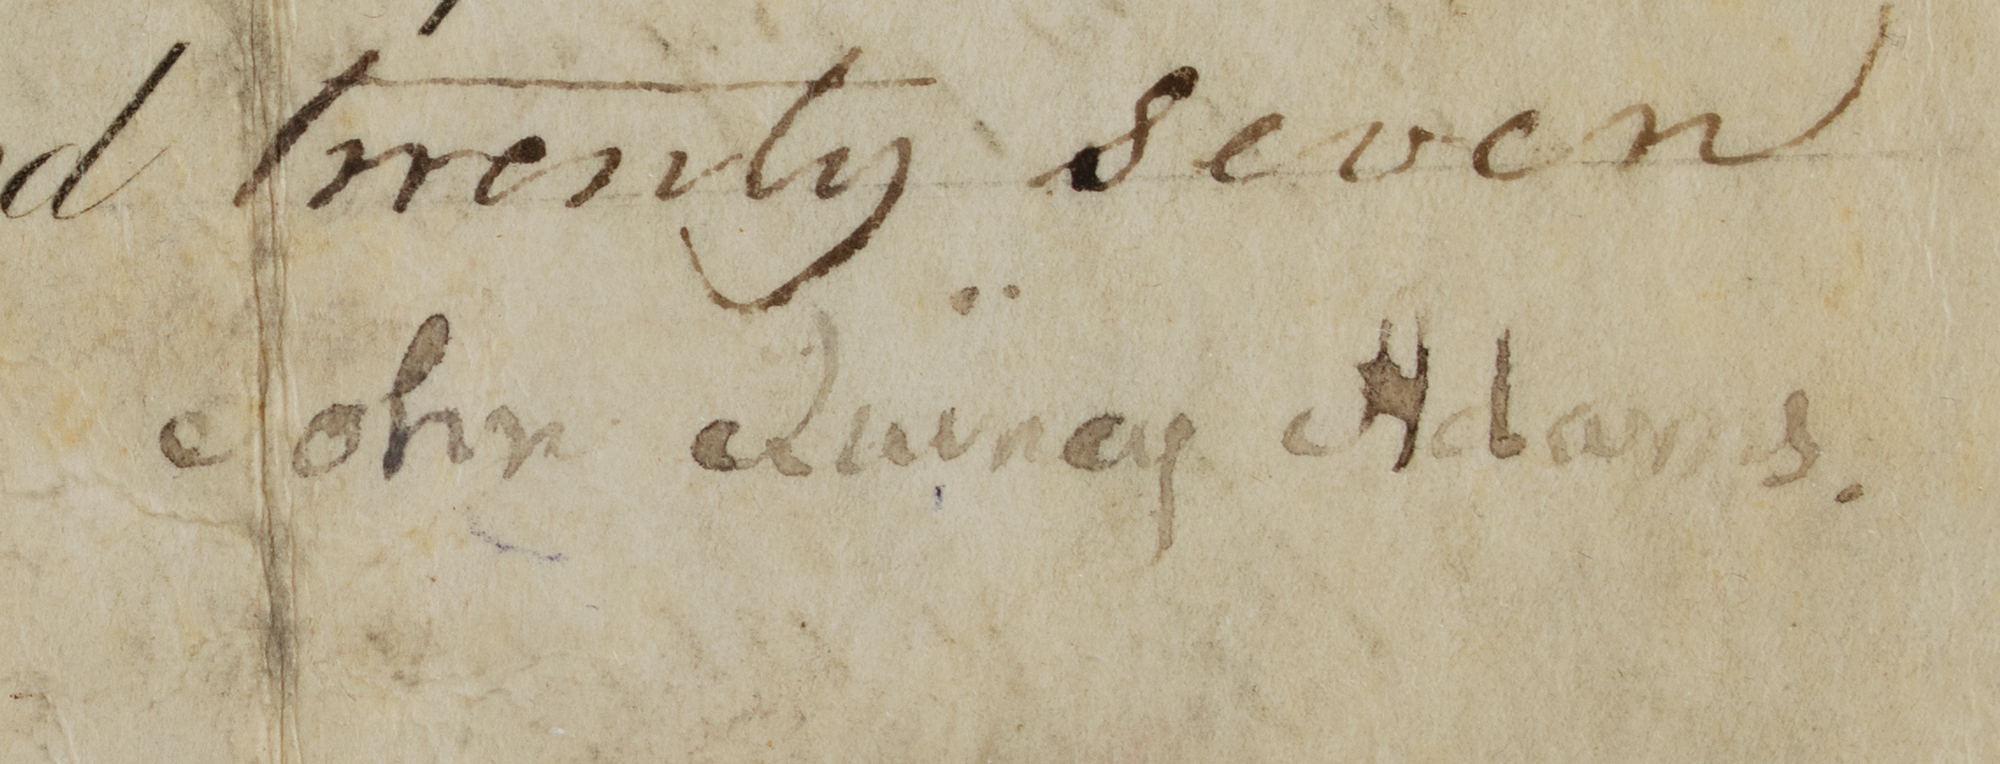 d twenty seven
John Quincy Adams.